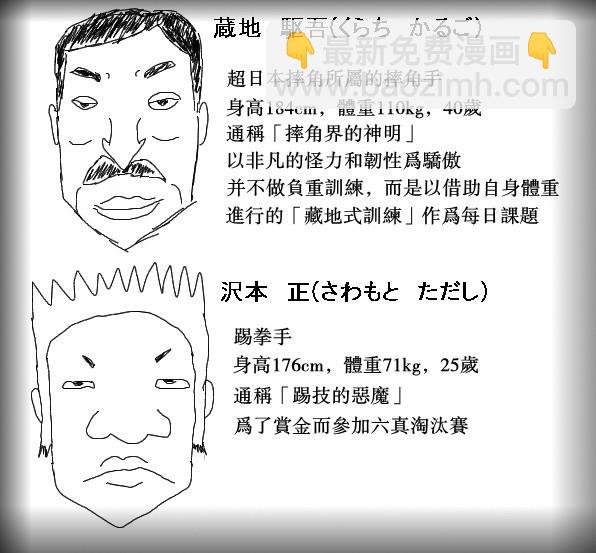 蔵地 駆吾(くらち かるご)
👇最新免费漫画👇
www.baozimh.com
超日本摔角所屬的摔角手
身高184cm，體重110kg，40歲
通稱「摔角界的神明」
以非凡的怪力和韌性爲驕傲
并不做負重訓練，而是以借助自身體重
進行的「藏地式訓練」作爲每日課題
沢本 正(さわもと ただし)
踢拳手
身高176cm，體重71kg，25歲
通稱「踢技的惡魔」
爲了賞金而參加六真淘汰賽